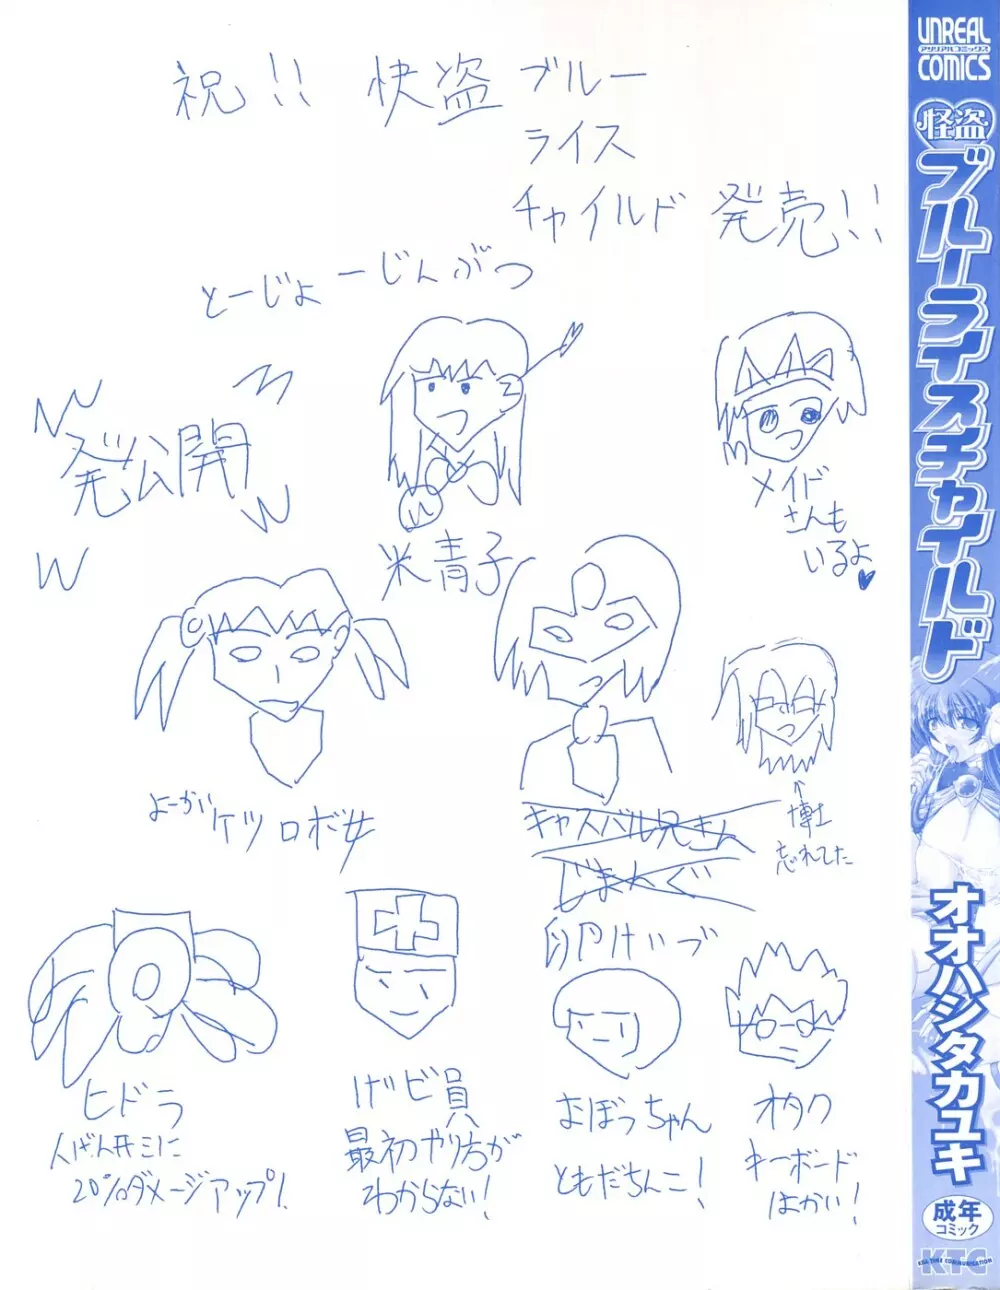 祝!! 快盗 ブルー
ライス
チャイルド 発売!!
とーじょーじんぶつ
発公開
米青子
メイド
さんも
いるよ
よーかいケツロボ女
キャスバル兄さん
じまんぐ
博士
忘れてた
ヒドラ
人げん形ミに
20%ダメージアップ!
げビ員
最初やり方が
わからない!
おぼっちゃん
ともだちんこ!
オタク
キーボード
はかい!
UNREAL
アンリアルコミックス
COMICS
怪盗
ブルーライスチャイルド
オオハシタカユキ
成年
コミック
KTC
KILL TIME COMMUNICATION